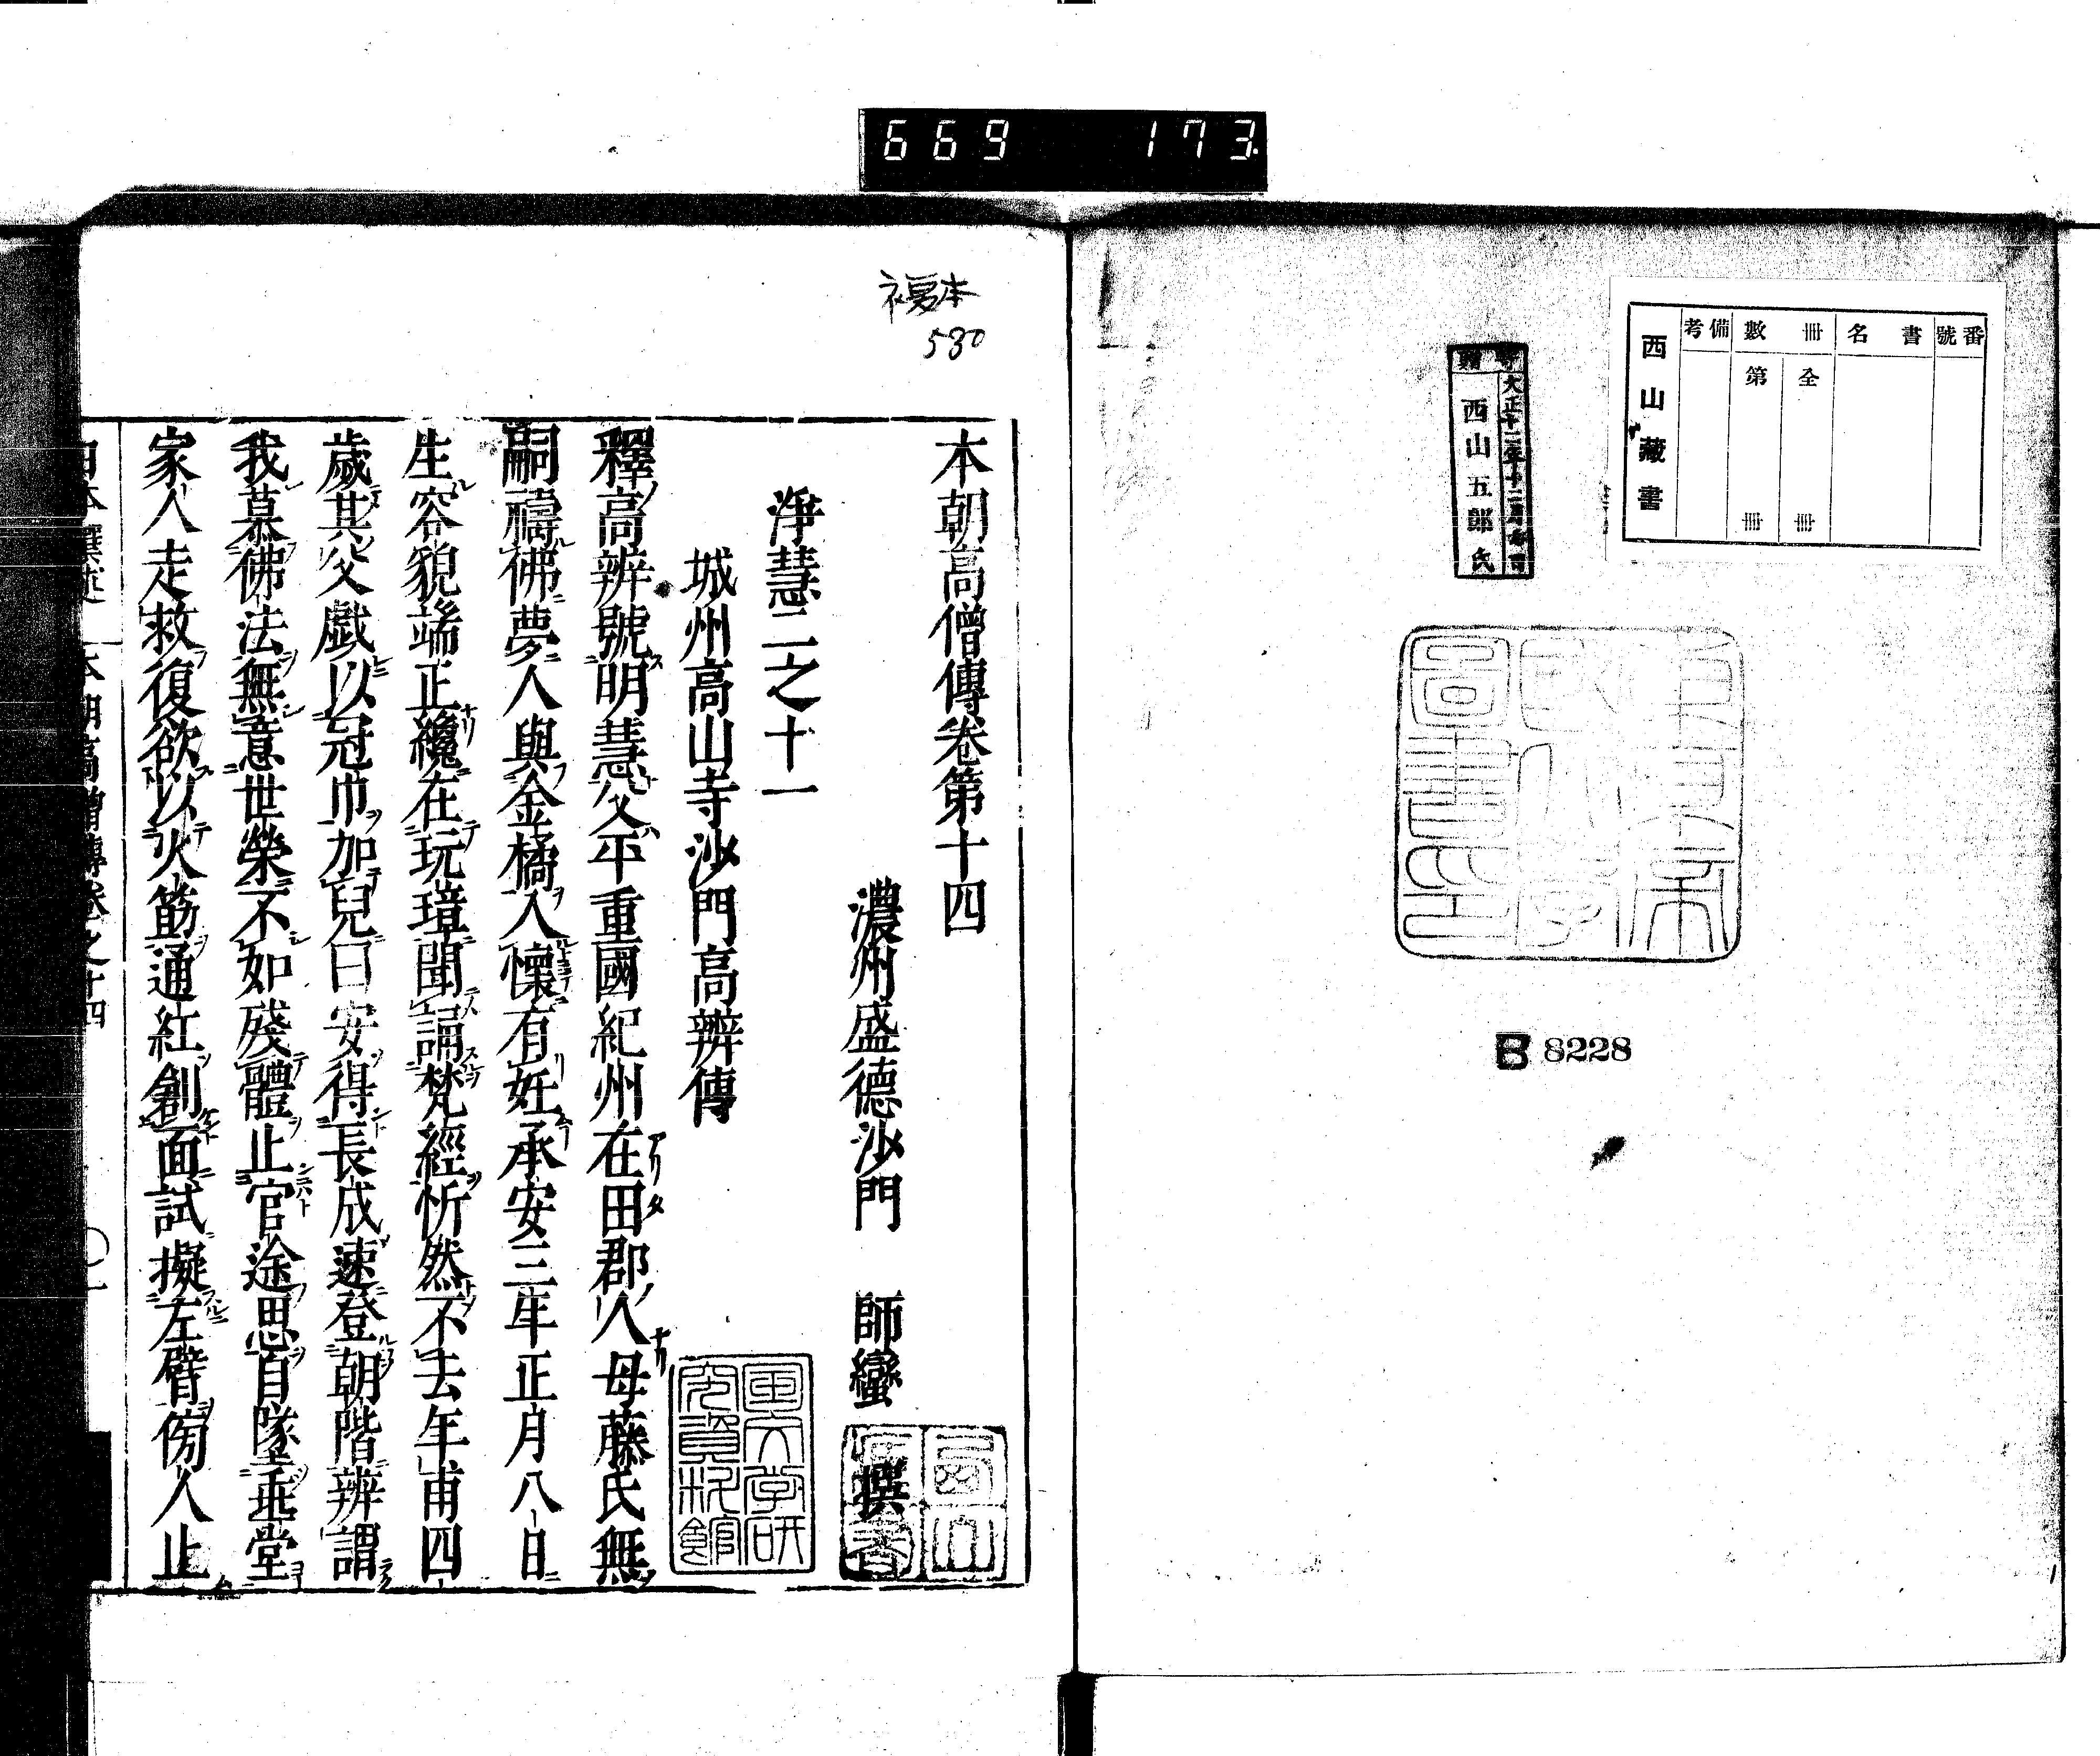 669 173
番號
書名
冊數
全 冊
第 冊
備考
西山藏書
寄贈
大正十二年十二月
西山五郎氏
B 8228
複本
530
本朝高僧傳卷第十四
濃州盛德沙門 師蠻 撰
淨慧二之十一
城州高山寺沙門高辨傳
釋高辨號明慧父平重國紀州在田郡人母藤氏無
嗣禱佛夢人與金橘入懷有妊承安三年正月八日
生容貌端正纔在玩璋聞誦梵經忻然不去年甫四
歲其父戲以冠巾加兒曰安得長成速登朝階辨謂
我慕佛法無意世榮不如殘體止官途思自墜垂堂
家人走救復欲以火筯通紅創面試擬左臂傍人止
日本撰述 本朝高僧傳卷之十四 〇一
國文學研究資料館